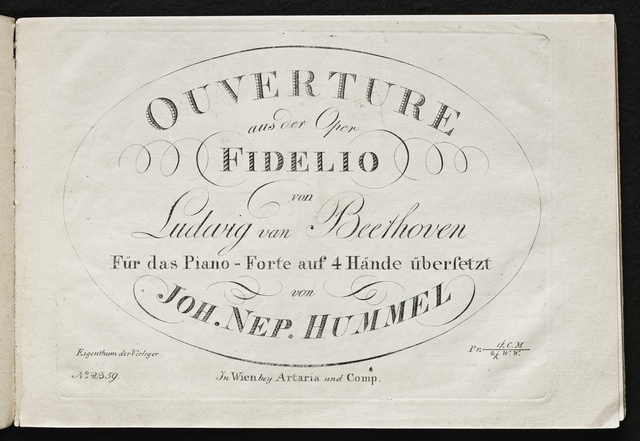 OUVERTURE
aus der Oper
FIDELIO
von
Ludwig van Beethoven
Für das Piano-Forte auf 4 Hände überſetzt
von
JOH. NEP. HUMMEL
Eigenthum der Verleger
Pr. 1f. C.M
2f. W.W.
No. 2359.
In Wien bey Artaria und Comp.